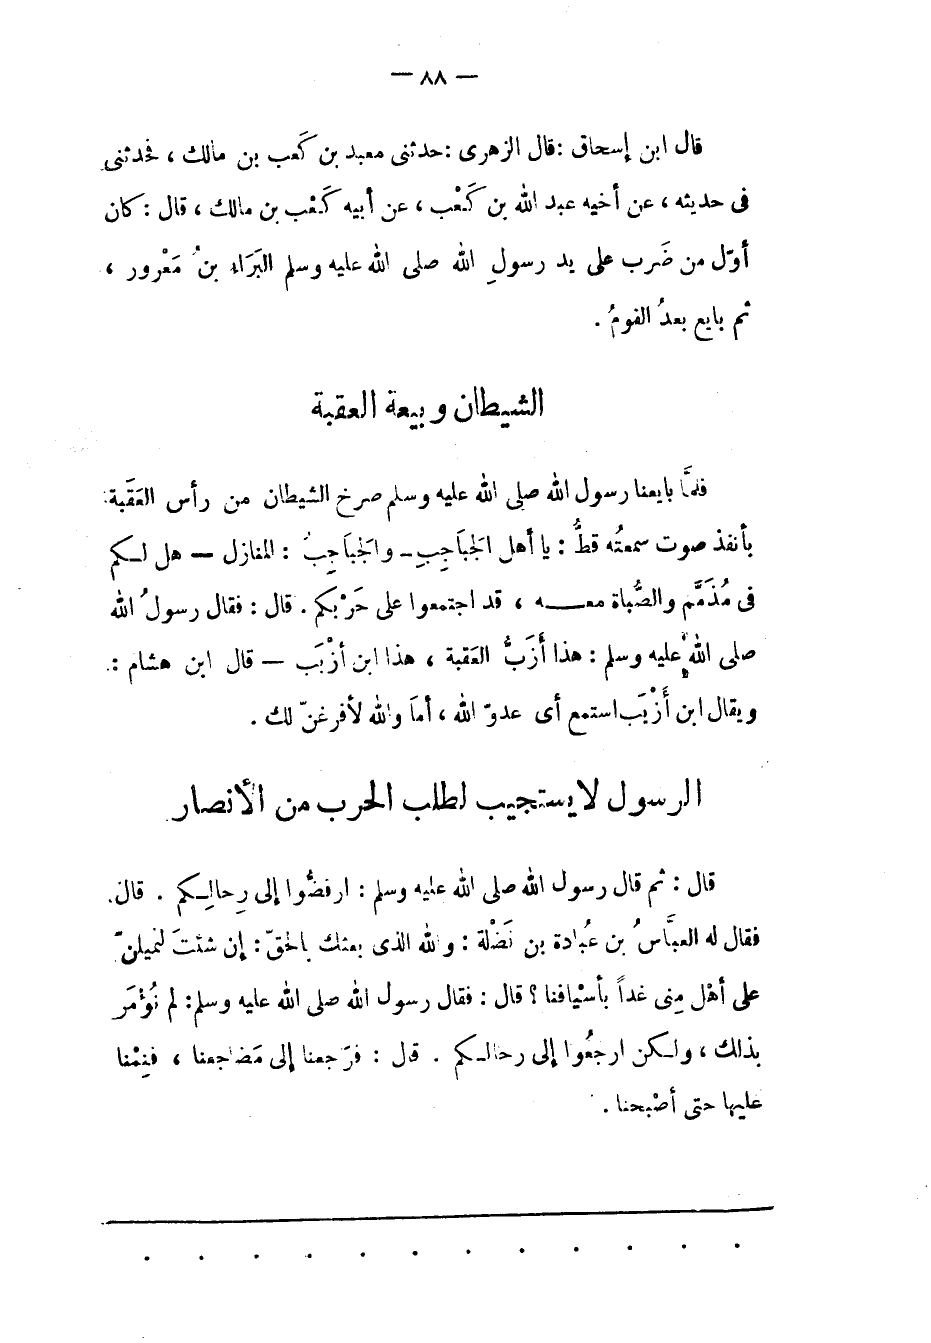 — ٨٨ —
قال ابن إسحاق : قال الزهرى : حدثنى معبد بن كَعب بن مالك ، فحدثنى
فى حديثه ، عن أخيه عبد الله بن كَعْب ، عن أبيه كَعْب بن مالك ، قال : كان
أوّل من ضَرب على يد رسولِ الله صلى الله عليه وسلم البَرَاء بنُ مَعْرور ،
ثم بايع بعدُ القومُ .
الشيطان وبيعة العقبة
فلمَّا بايعنا رسول الله صلى الله عليه وسلم صرخ الشيطان من رأس العَقَبة
بأنفذ صوت سمعتُه قطُّ : يا أهل الجَباَجِبِ - والجَباَجِبُ : المنازل — هل لكم
فى مُذَمَّم والصُّباة معه ، قد اجتمعوا على حَرْبكم . قال : فقال رسولُ الله
صلى الله عليه وسلم : هذا أَزَبُّ العَقبة ، هذا ابن أزْيَب — قال ابن هشام :
ويقال ابن أَزْيَب استمع أى عدوّ الله ، أماَ والله لأفرغنّ لك .
الرسول لا يستجيب لطلب الحرب من الأنصار
قال : ثم قال رسول الله صلى الله عليه وسلم : ارفضُّوا إلى رِحالِكم . قال
فقال له العبَّاسُ بن عُبادة بن نَضْلة : والله الذى بعثك بالحقّ : إن شئتَ لنميلنّ
على أهْل مِنى غداً بأسْيافنا ؟ قال : فقال رسول الله صلى الله عليه وسلم : لم نُؤْمَر
بذلك ، ولكن ارجعُوا إلى رحالكم . قال : فرَجعنا إلى مَضاجعنا ، فنِمْنا
عليها حتى أصْبحنا .